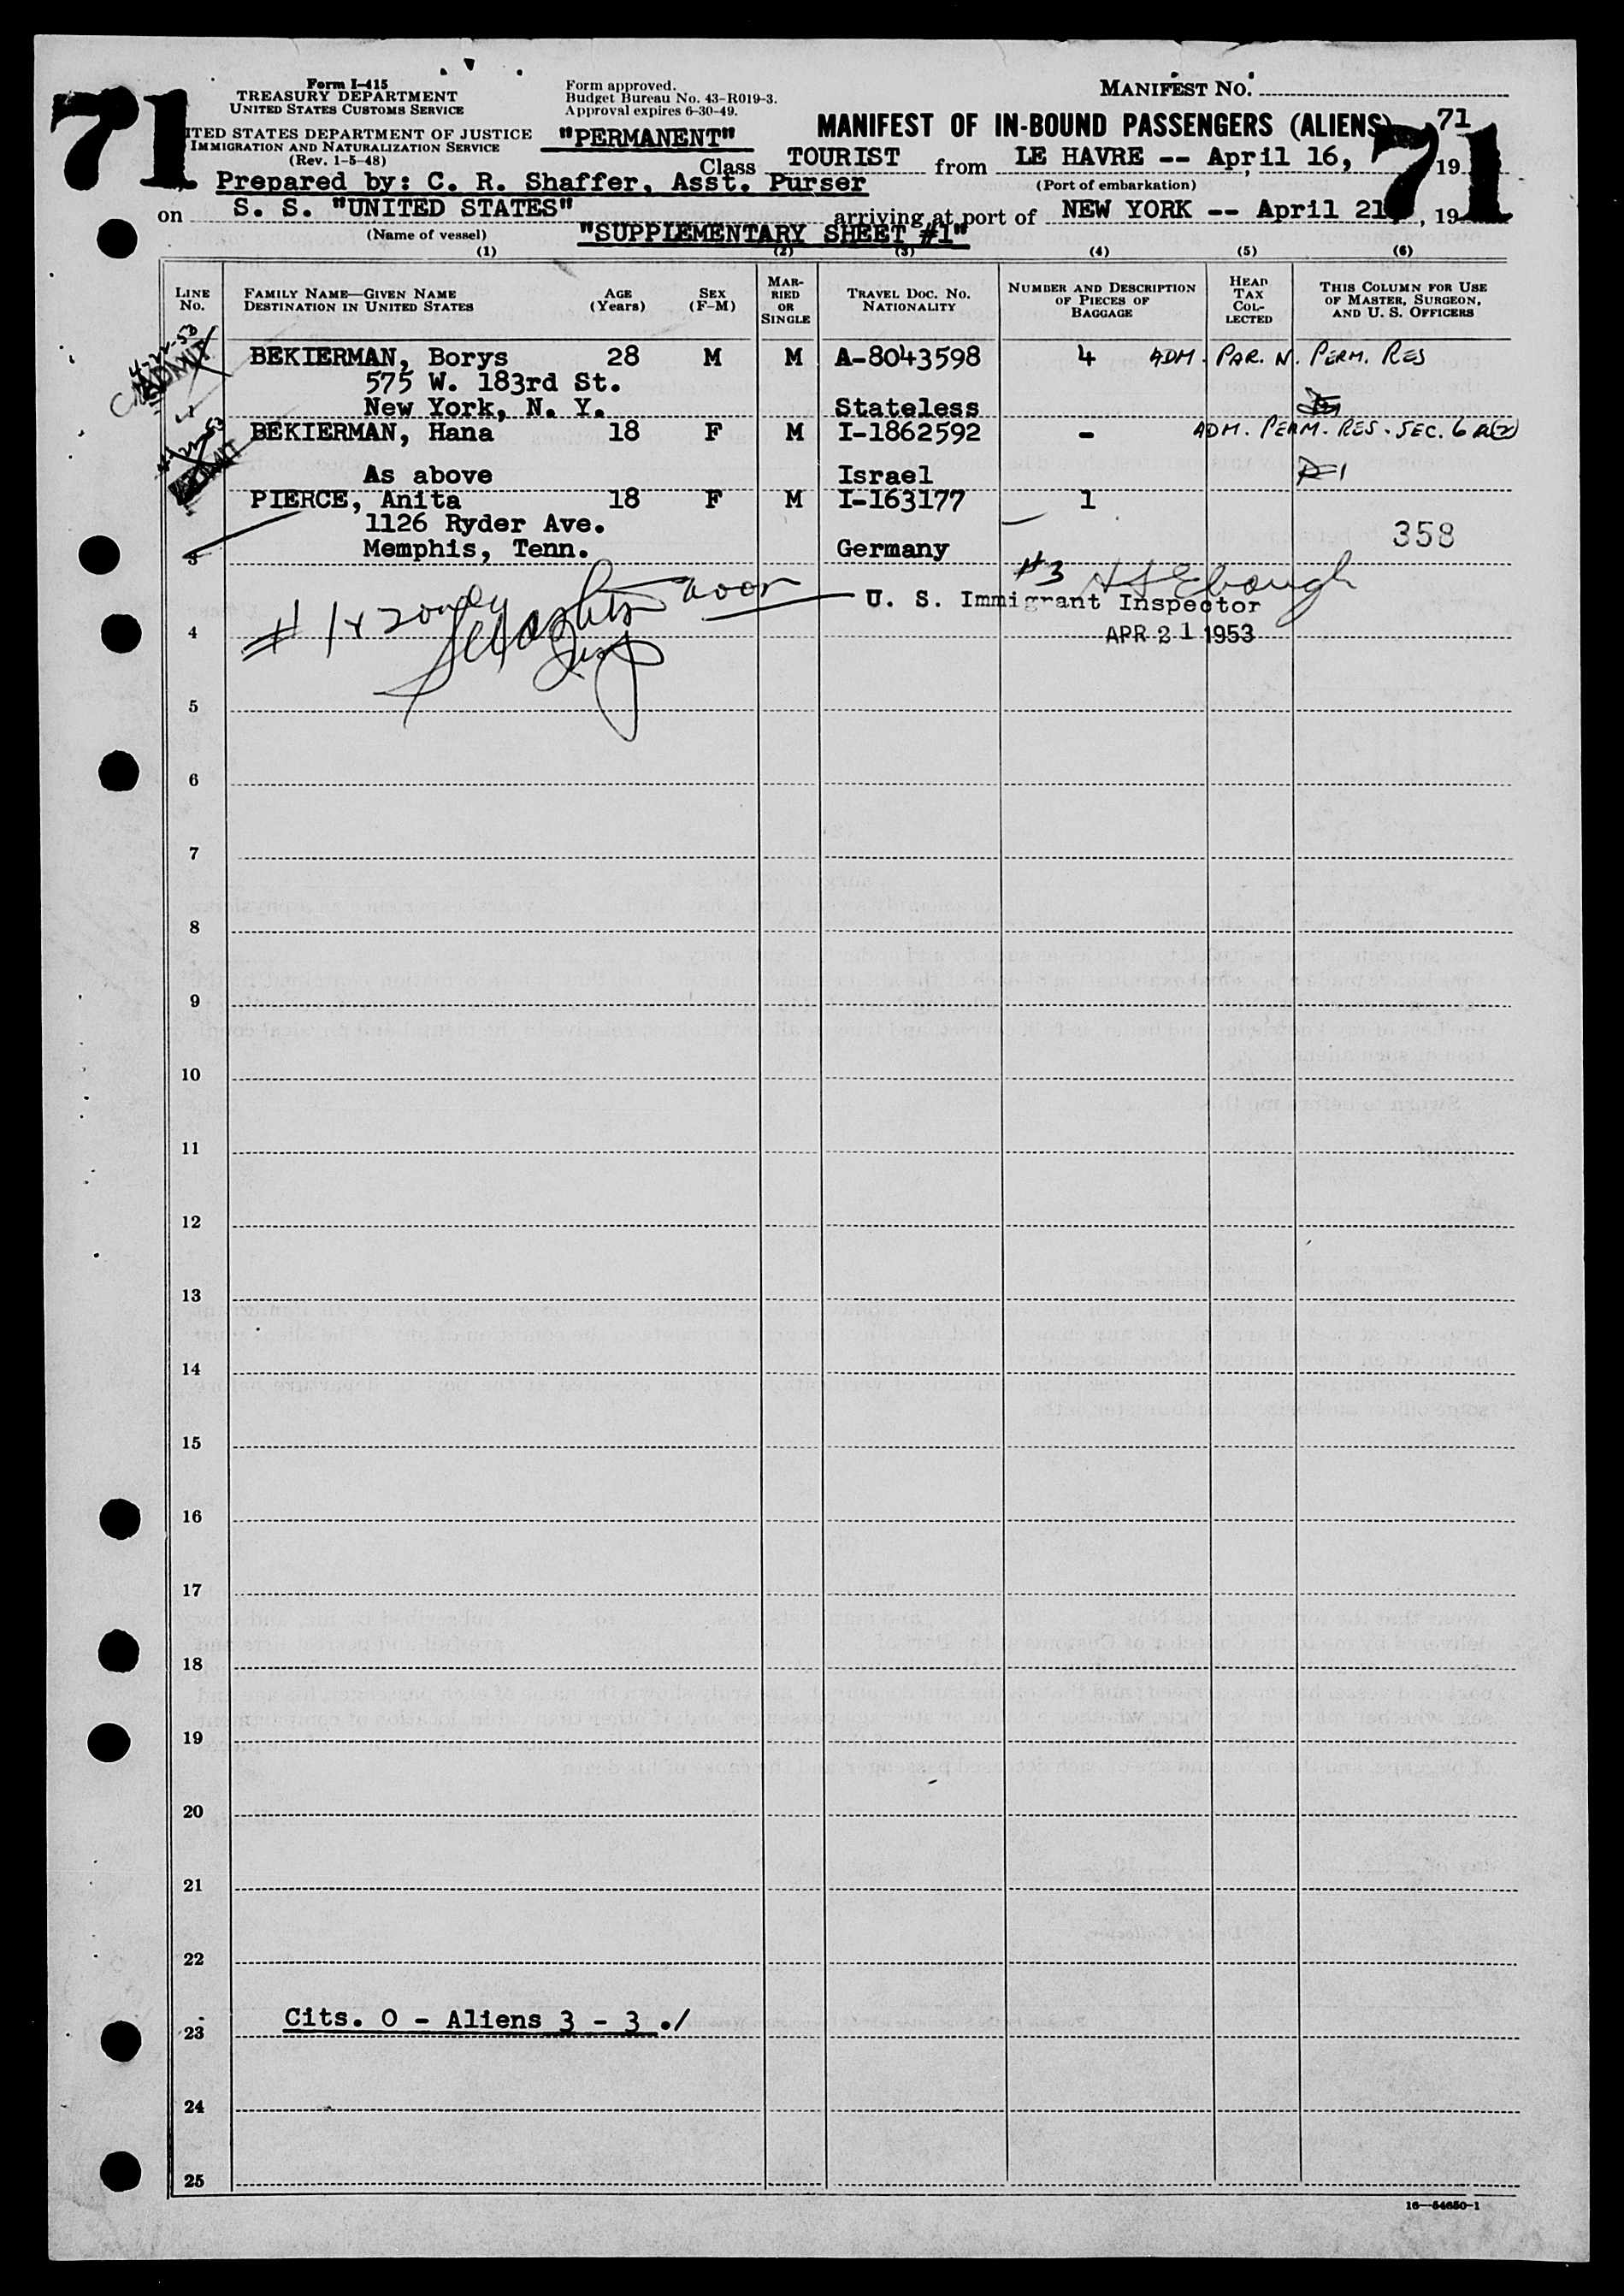 71
Form I-415
TREASURY DEPARTMENT
UNITED STATES CUSTOMS SERVICE
ITED STATES DEPARTMENT OF JUSTICE
IMMIGRATION AND NATURALIZATION SERVICE
(Rev. 1-5-48)
Form approved.
Budget Bureau No. 43-R019-3.
Approval expires 6-30-49.
"PERMANENT"
MANIFEST NO.
71
MANIFEST OF IN-BOUND PASSENGERS (ALIENS)
71
Class TOURIST from LE HAVRE -- April 16, 19
(Port of embarkation)
Prepared by: C. R. Shaffer, Asst. Purser
on S. S. "UNITED STATES" arriving at port of NEW YORK -- April 21, 19
(Name of vessel)
"SUPPLEMENTARY SHEET #1"
(1) (2) (3) (4) (5) (6)
LINE No.
FAMILY NAME—GIVEN NAME
DESTINATION IN UNITED STATES
AGE (Years)
SEX (F-M)
MARRIED OR SINGLE
TRAVEL DOC. NO.
NATIONALITY
NUMBER AND DESCRIPTION OF PIECES OF BAGGAGE
HEAD TAX COLLECTED
THIS COLUMN FOR USE OF MASTER, SURGEON, AND U. S. OFFICERS
4-22-53
ADMIT
BEKIERMAN, Borys 28 M M A-8043598 4 ADM. PAR. N. PERM. RES
575 W. 183rd St.
New York, N. Y. Stateless
4-22-53
ADMIT
BEKIERMAN, Hana 18 F M I-1862592 - ADM. PERM. RES. SEC. 6 A(2)
As above Israel
PIERCE, Anita 18 F M I-163177 1
1126 Ryder Ave.
358
3 Memphis, Tenn. Germany
#3
U. S. Immigrant Inspector
4 APR 21 1953
5
6
7
8
9
10
11
12
13
14
15
16
17
18
19
20
21
22
23 Cits. 0 - Aliens 3 - 3 ./
24
25
16—54650-1